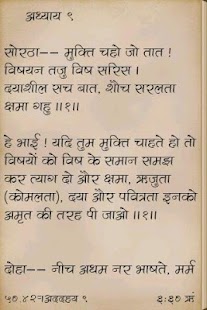 अध्याय ९
सोरठा-- मुक्ति चहो जो तात !
विषयन तजु विष सरिस ।
दयाशील सच बात, शौच सरलता
क्षमा गहु ॥१॥
हे भाई ! यदि तुम मुक्ति चाहते हो तो
विषयों को विष के समान समझ
कर त्याग दो और क्षमा, ऋजुता
(कोमलता), दया और पवित्रता इनको
अमृत की तरह पी जाओ ॥१॥
दोहा-- नीच अधम नर भाषते, मर्म
५०.४२%
३:३०